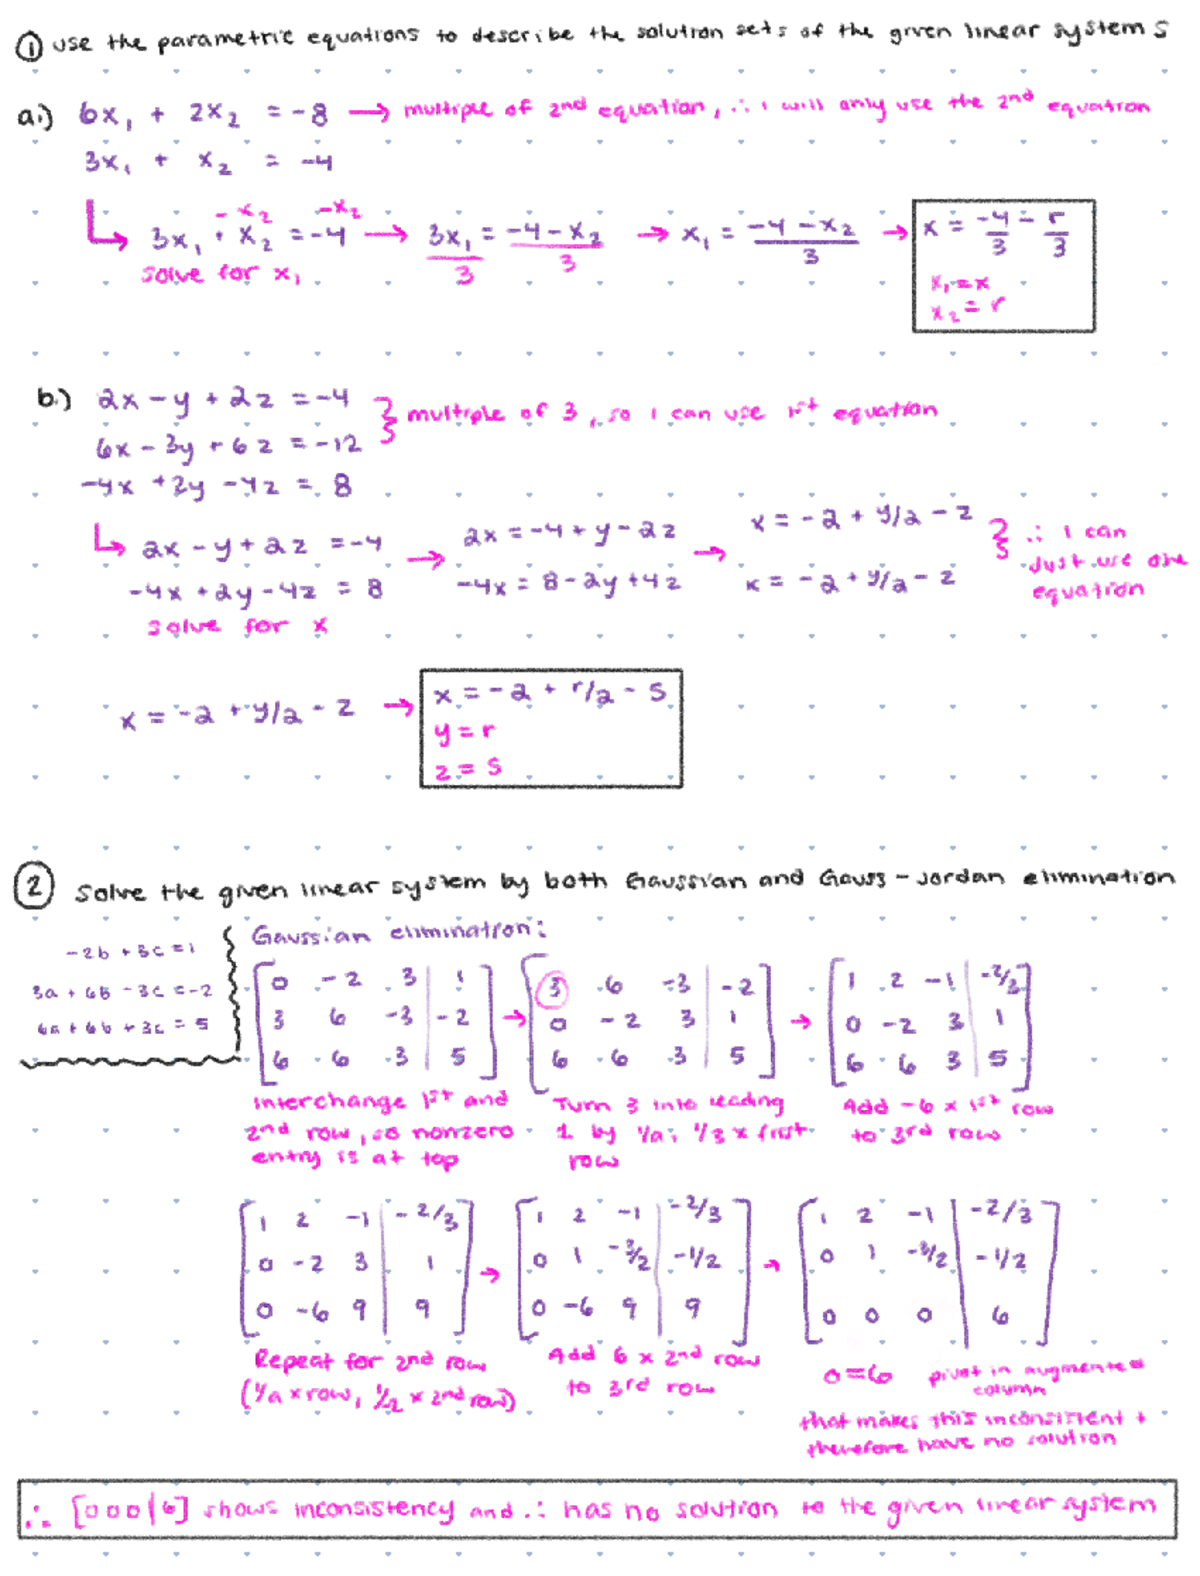 ① use the parametric equations to describe the solution sets of the given linear systems
a.) 6x₁ + 2x₂ = -8 → multiple of 2nd equation, ∴ I will only use the 2nd equation
3x₁ + x₂ = -4
-x₂ -x₂
3x₁ + x₂ = -4 → 3x₁/3 = (-4-x₂)/3 → x₁ = (-4-x₂)/3 → x = -4/3 - r/3
solve for x₁
x₁ = x
x₂ = r
b.) 2x - y + 2z = -4 } multiple of 3, so I can use 1st equation
6x - 3y + 6z = -12
-4x + 2y - 4z = 8
2x - y + 2z = -4 → 2x = -4 + y - 2z → x = -2 + y/2 - z } ∴ I can just use one equation
-4x + 2y - 4z = 8 -4x = 8 - 2y + 4z x = -2 + y/2 - z
solve for x
x = -2 + y/2 - z → x = -2 + r/2 - s
y = r
z = s
② Solve the given linear system by both Gaussian and Gauss-Jordan elimination
-2b + 3c = 1
3a + 6b - 3c = -2
6a + 6b + 3c = 5
Gaussian elimination:
[0 -2 3 | 1] → [3 6 -3 | -2] → [1 2 -1 | -2/3]
[3 6 -3 | -2] [0 -2 3 | 1] [0 -2 3 | 1]
[6 6 3 | 5] [6 6 3 | 5] [6 6 3 | 5]
Interchange 1st and
2nd row, so nonzero
entry is at top
Turn 3 into leading
1 by 1/a; 1/3 x first
row
Add -6 x 1st row
to 3rd row
[1 2 -1 | -2/3] → [1 2 -1 | -2/3] → [1 2 -1 | -2/3]
[0 -2 3 | 1] [0 1 -3/2 | -1/2] [0 1 -3/2 | -1/2]
[0 -6 9 | 9] [0 -6 9 | 9] [0 0 0 | 6]
Repeat for 2nd row
(1/a x row, 1/2 x 2nd row)
Add 6 x 2nd row
to 3rd row
0=6 pivot in augmented
column
that makes this inconsistent +
therefore have no solution
∴ [0 0 0 | 6] shows inconsistency and ∴ has no solution to the given linear system